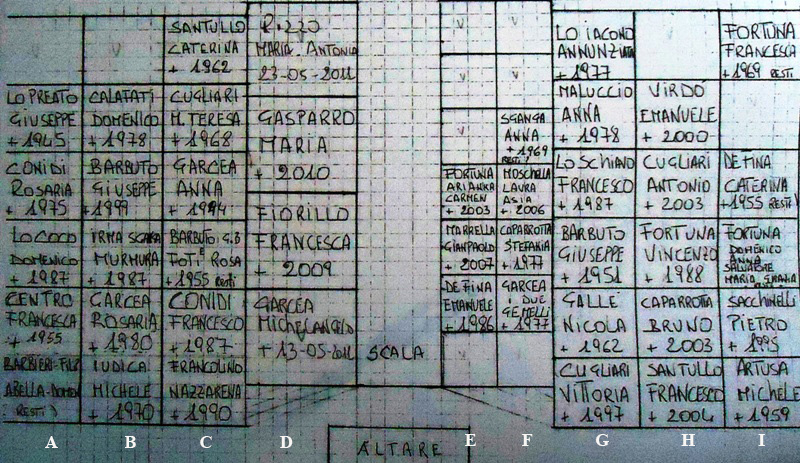 V
SANTULLO
CATERINA
+ 1962
RIZZO
MARIA ANTONIA
23-05-2011
V
V
LO IACONO
ANNUNZIATA
+ 1977
V
FORTUNA
FRANCESCA
+ 1969 RESTI
LO PREATO
GIUSEPPE
+ 1945
CALAFATI
DOMENICO
+ 1978
CUGLIARI
M. TERESA
+ 1968
GASPARRO
MARIA
+ 2010
V
V
MALUCCIO
ANNA
+ 1978
VIRDÓ
EMANUELE
+ 2000
V
SGANGA
ANNA
+ 1969
RESTI
CONIDI
ROSARIA
+ 1975
BARBUTO
GIUSEPPE
+ 1999
GARCEA
ANNA
+ 1994
FIORILLO
FRANCESCA
+ 2009
FORTUNA
ARIANNA
CARMEN
+ 2003
MOSCHELLA
LAURA
ASIA
+ 2006
LO SCHIAVO
FRANCESCO
+ 1987
CUGLIARI
ANTONIO
+ 2003
DE FINA
CATERINA
+ 1955 RESTI)
LO COCO
DOMENICO
+ 1987
IRMA SCARA
MURMURA
+ 1987
BARBUTO G.B
FOTI ROSA
+ 1955 RESTI
MARRELLA
GIANPAOLO
+ 2007
CAPARROTTA
STEFANIA
+ 1977
BARBUTO
GIUSEPPE
+ 1951
FORTUNA
VINCENZO
+ 1988
FORTUNA
DOMENICO
ANNA
SALVATORE
MARIA
CENTRO
FRANCESCA
+ 1955
GARCEA
ROSARIA
+ 1980
CONIDI
FRANCESCO
+ 1987
GARCEA
MICHELANGELO
+ 13-05-2011
SCALA
DE FINA
EMANUELE
+ 1986
GARCEA
I DUE
GEMELLI
+ 1977
GALLE'
NICOLA
+ 1962
CAPARROTTA
BRUNO
+ 2003
SACCHINELLI
PIETRO
+ 1995
BARBIERI-FILO
ABELLA-DOMEN
RESTI)
IUDICA
MICHELE
+ 1970
FRANCOLINO
NAZZARENA
+ 1990
V
CUGLIARI
VITTORIA
+ 1997
SANTULLO
FRANCESCO
+ 2004
ARTUSA
MICHELE
+ 1959
A B C D E F G H I
ALTARE